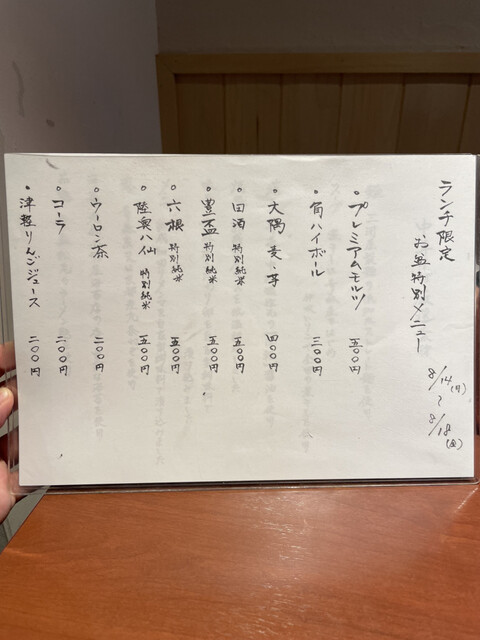 ランチ限定
お盆特別メニュー
8/14(月)
～
8/18(金)
・プレミアムモルツ 五〇〇円
・角ハイボール 三〇〇円
・大隅 麦・芋 四〇〇円
・田酒 特別純米 五〇〇円
・豊盃 特別純米 五〇〇円
・六根 特別純米 五〇〇円
・陸奥八仙 特別純米 五〇〇円
・ウーロン茶 二〇〇円
・コーラ 二〇〇円
・津軽りんごジュース 二〇〇円